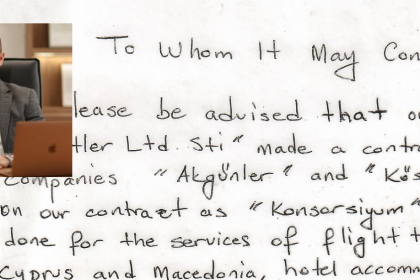 To Whom It May Con
lease be advised that
tler Ltd. Sti" made a contra
Companies "Akgünler" and "Kös
on our contract as "Konsorsiyum"
done for the services of flight t
Cyprus and Macedonia, hotel accom